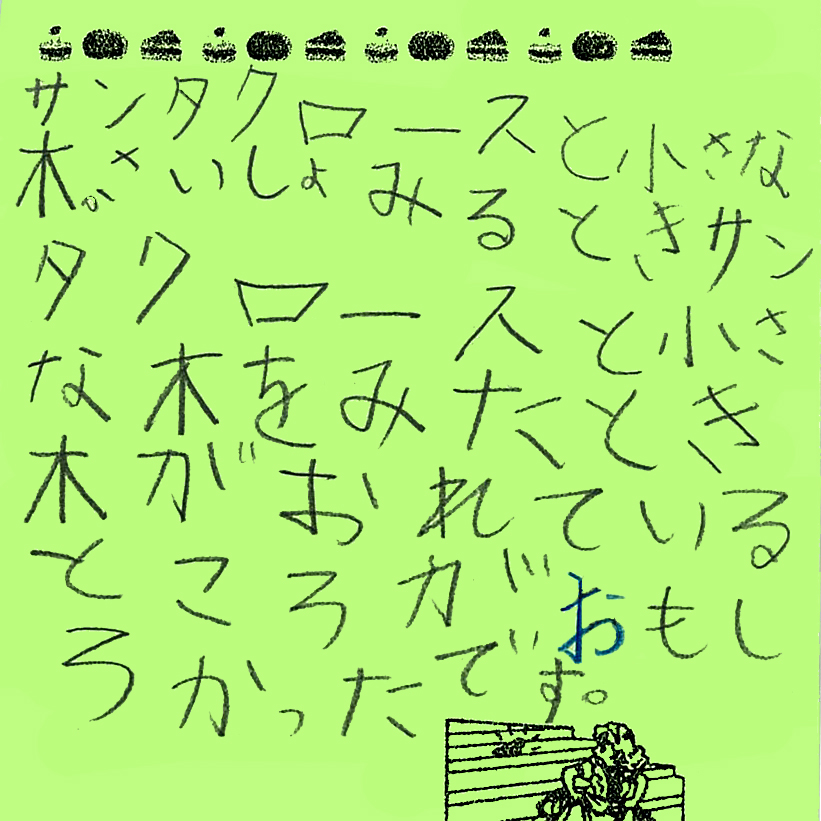 サンタクロースと小さな
木。さいしょみるときサン
タクロースと小さ
な木をみたとき
木がおれている
ところがおもし
ろかったです。